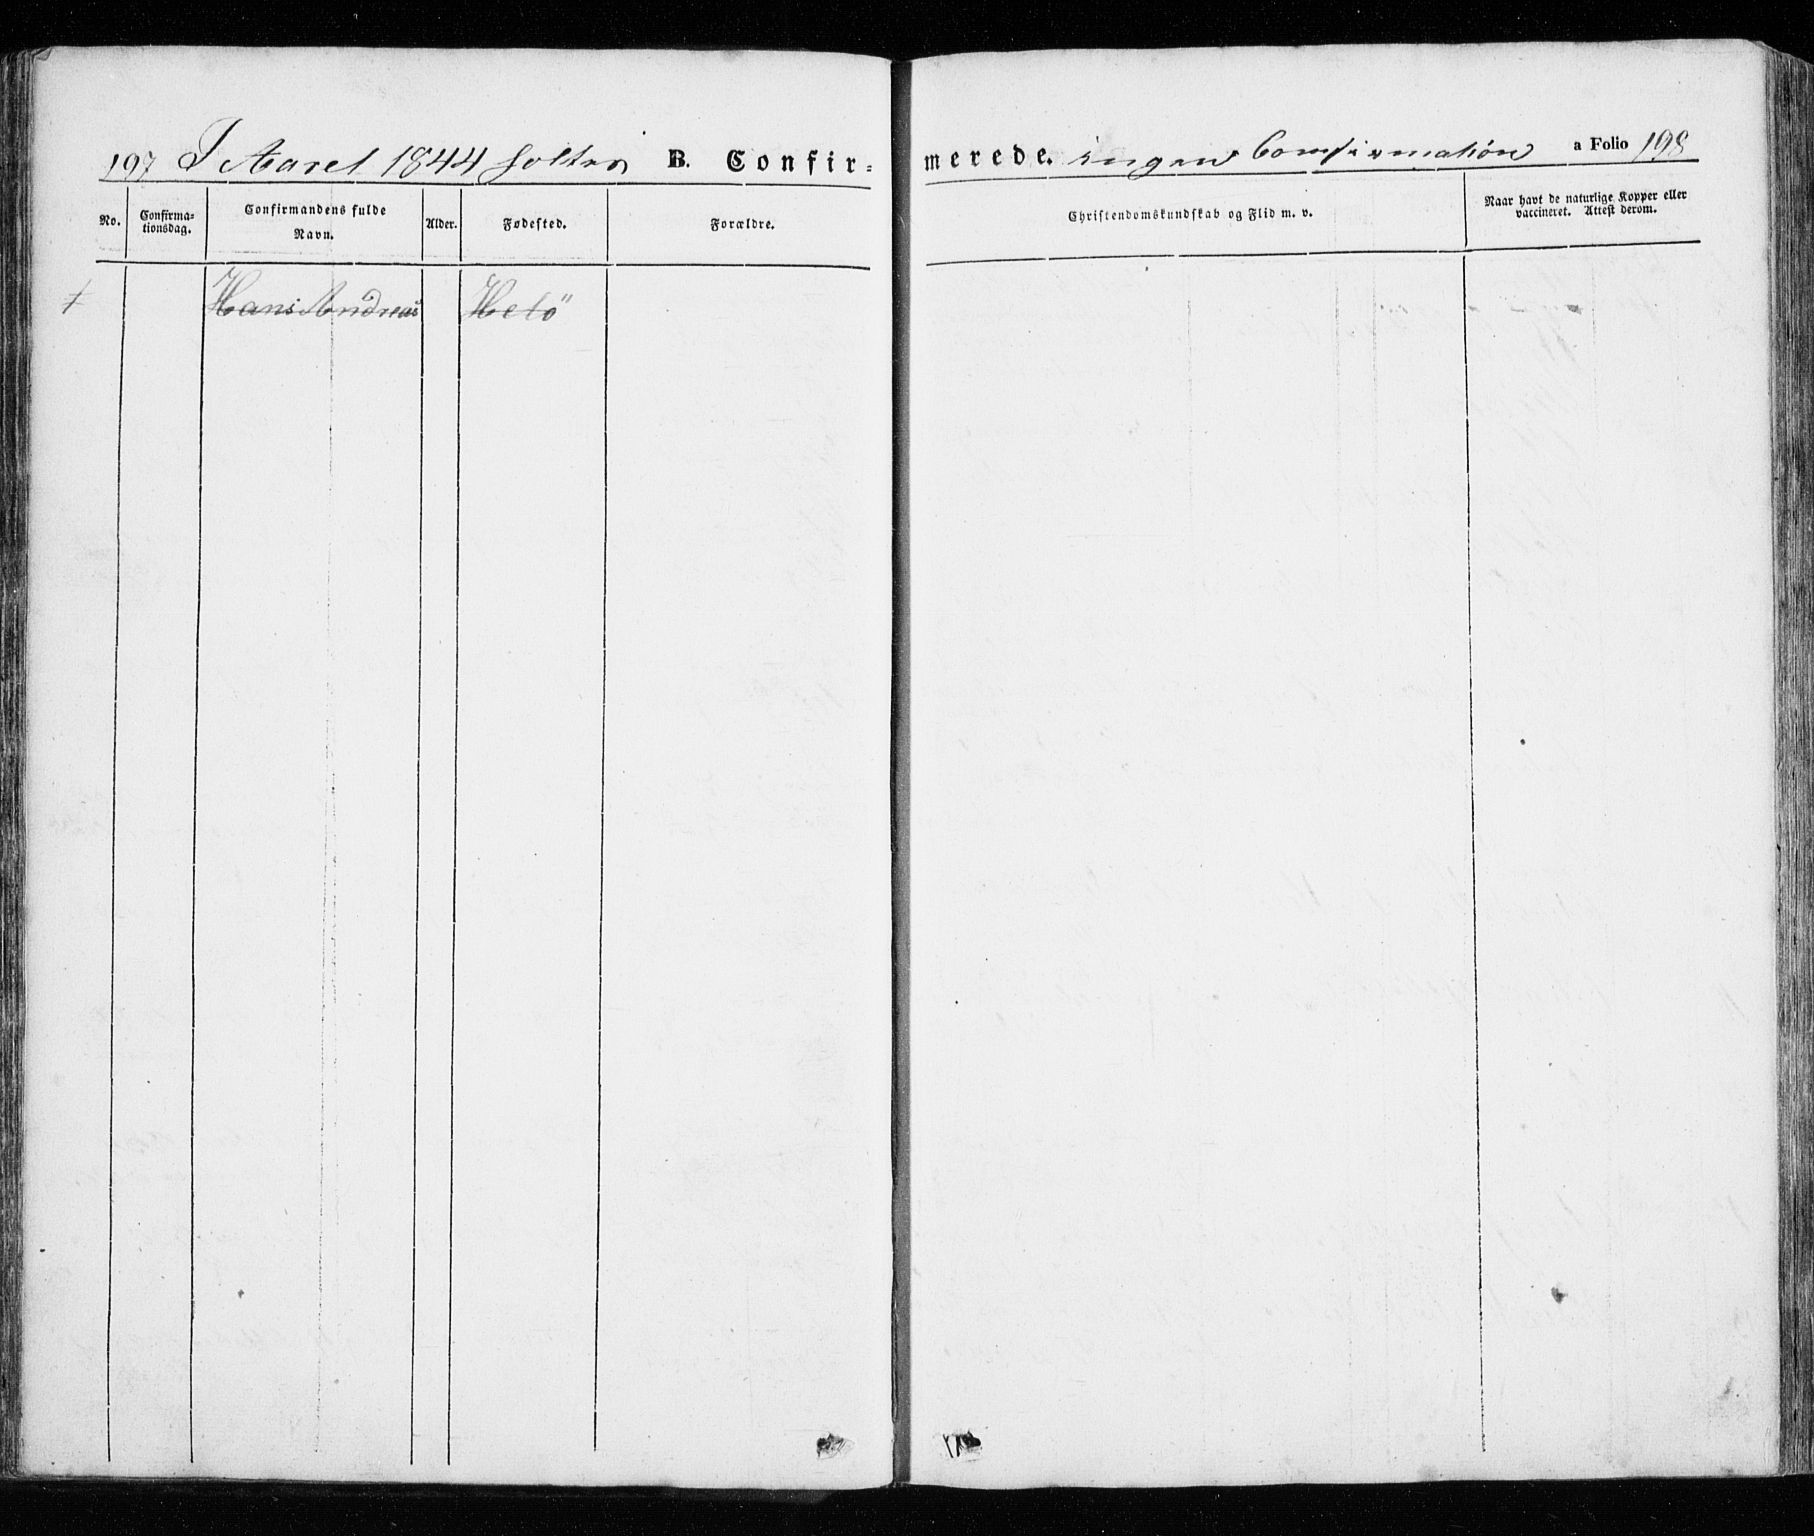 197 I Aaret 1844 holtes B. Confir=
merede. ingen Confirmation a Folio 198
No.
Confirma=
tionsdag.
Confirmandens fulde
Navn.
Alder.
Fødested.
Forældre.
Christendomskundskab og Flid m. v.
Naar havt de naturlige Kopper eller
vaccineret. Attest derom.
Hans Andreas Helö